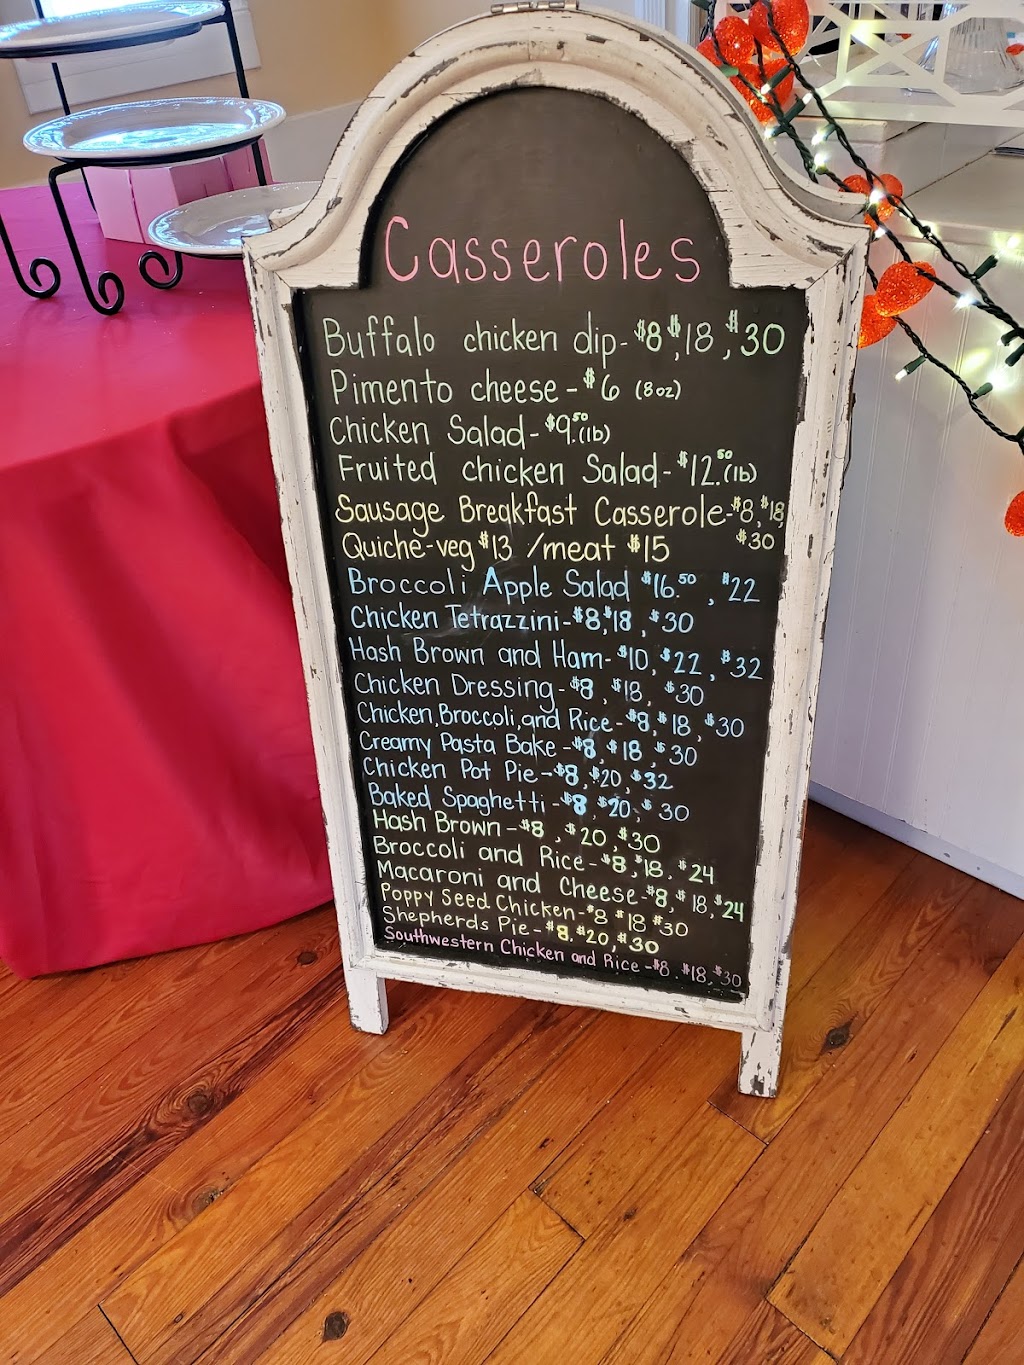 Casseroles
Buffalo chicken dip-$8,$18,$30
Pimento cheese-$6 (8oz)
Chicken Salad-$9.50(lb)
Fruited chicken Salad-$12.50(lb)
Sausage Breakfast Casserole-$8,$18,
$30
Quiche-veg $13 /meat $15
Broccoli Apple Salad $16.50, $22
Chicken Tetrazzini-$8,$18,$30
Hash Brown and Ham-$10,$22,$32
Chicken Dressing-$8,$18,$30
Chicken,Broccoli,and Rice-$8,$18,$30
Creamy Pasta Bake-$8,$18,$30
Chicken Pot Pie-$8,$20,$32
Baked Spaghetti-$8,$20,$30
Hash Brown-$8,$20,$30
Broccoli and Rice-$8,$18,$24
Macaroni and Cheese-$8,$18,$24
Poppy Seed Chicken-$8 $18 $30
Shepherds Pie-$8.$20,$30
Southwestern Chicken and Rice-$8,$18,$30